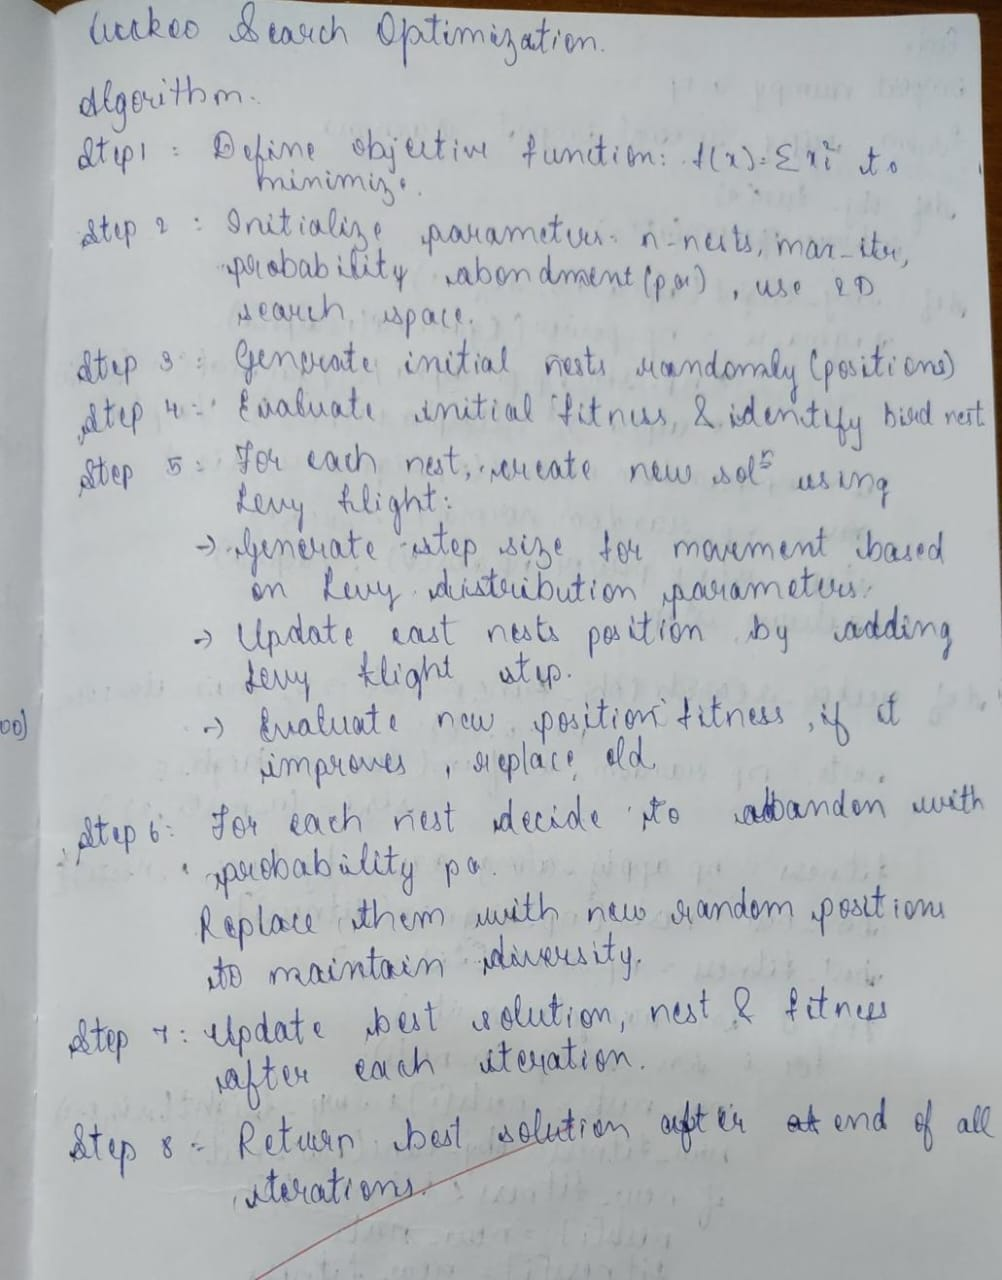 Cuckoo Search Optimization.
Algorithm.
Step 1 : Define objective function: f(x)=Σxi² to
minimize.
Step 2 : Initialize parameters- n-nests, max_itr,
probability abondment (pa), use 2D
search space.
Step 3 : Generate initial nests randomly (positions)
Step 4 : Evaluate initial fitness & identify bird nest
Step 5 : For each nest, create new solⁿ using
Levy flight:
→ Generate step size for movement based
on Levy distribution parameters.
→ Update east nests position by adding
Levy flight step.
→ Evaluate new position fitness, if it
improves, replace old
00)
Step 6 : For each nest decide to abandon with
probability pa.
Replace them with new random positions
to maintain diversity.
Step 7 : Update best solution, nest & fitness
after each iteration.
Step 8 - Return best solution after at end of all
iterations.